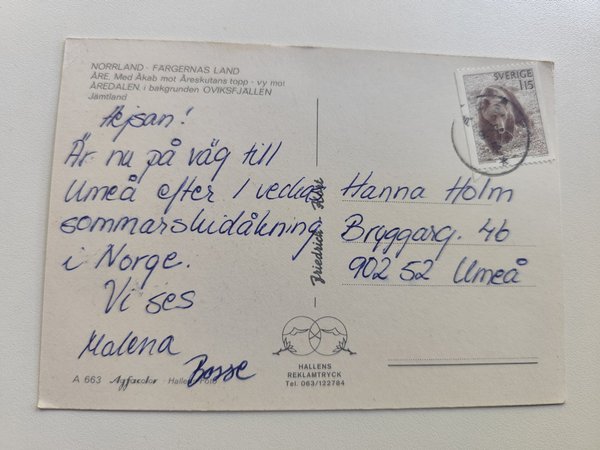 NORRLAND - FÄRGERNAS LAND
ÅRE. Med Åkab mot Åreskutans topp - vy mot
ÅREDALEN, i bakgrunden OVIKSFJÄLLEN
Jämtland
SVERIGE
115
Hejsan!
Är nu på väg till
Umeå efter 1 vecka
sommarskidåkning
i Norge.
Vi ses
Malena
Bosse
Hanna Holm
Bryggarg. 4b
902 52 Umeå
HALLENS
REKLAMTRYCK
Tel. 063/122784
A 663 Agfacolor · Hallens Foto